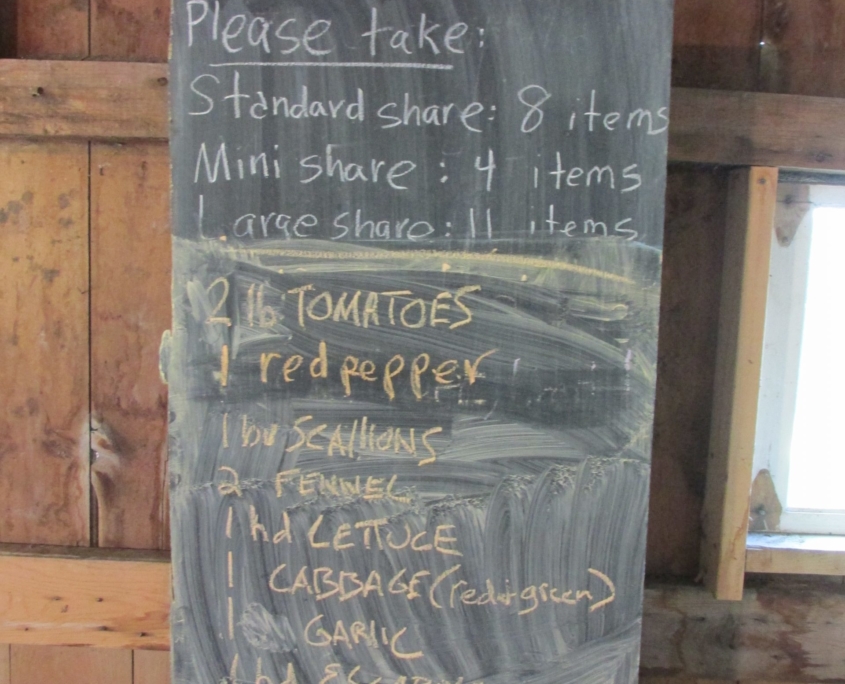 Please take:
Standard share: 8 items
Mini share: 4 items
Large share: 11 items
2 lb TOMATOES
1 red pepper
1 bu SCAllIONS
2 FENNEL
1 hd LETTUCE
1 CABBAGE (red+green)
1 GARLIC
1 hd